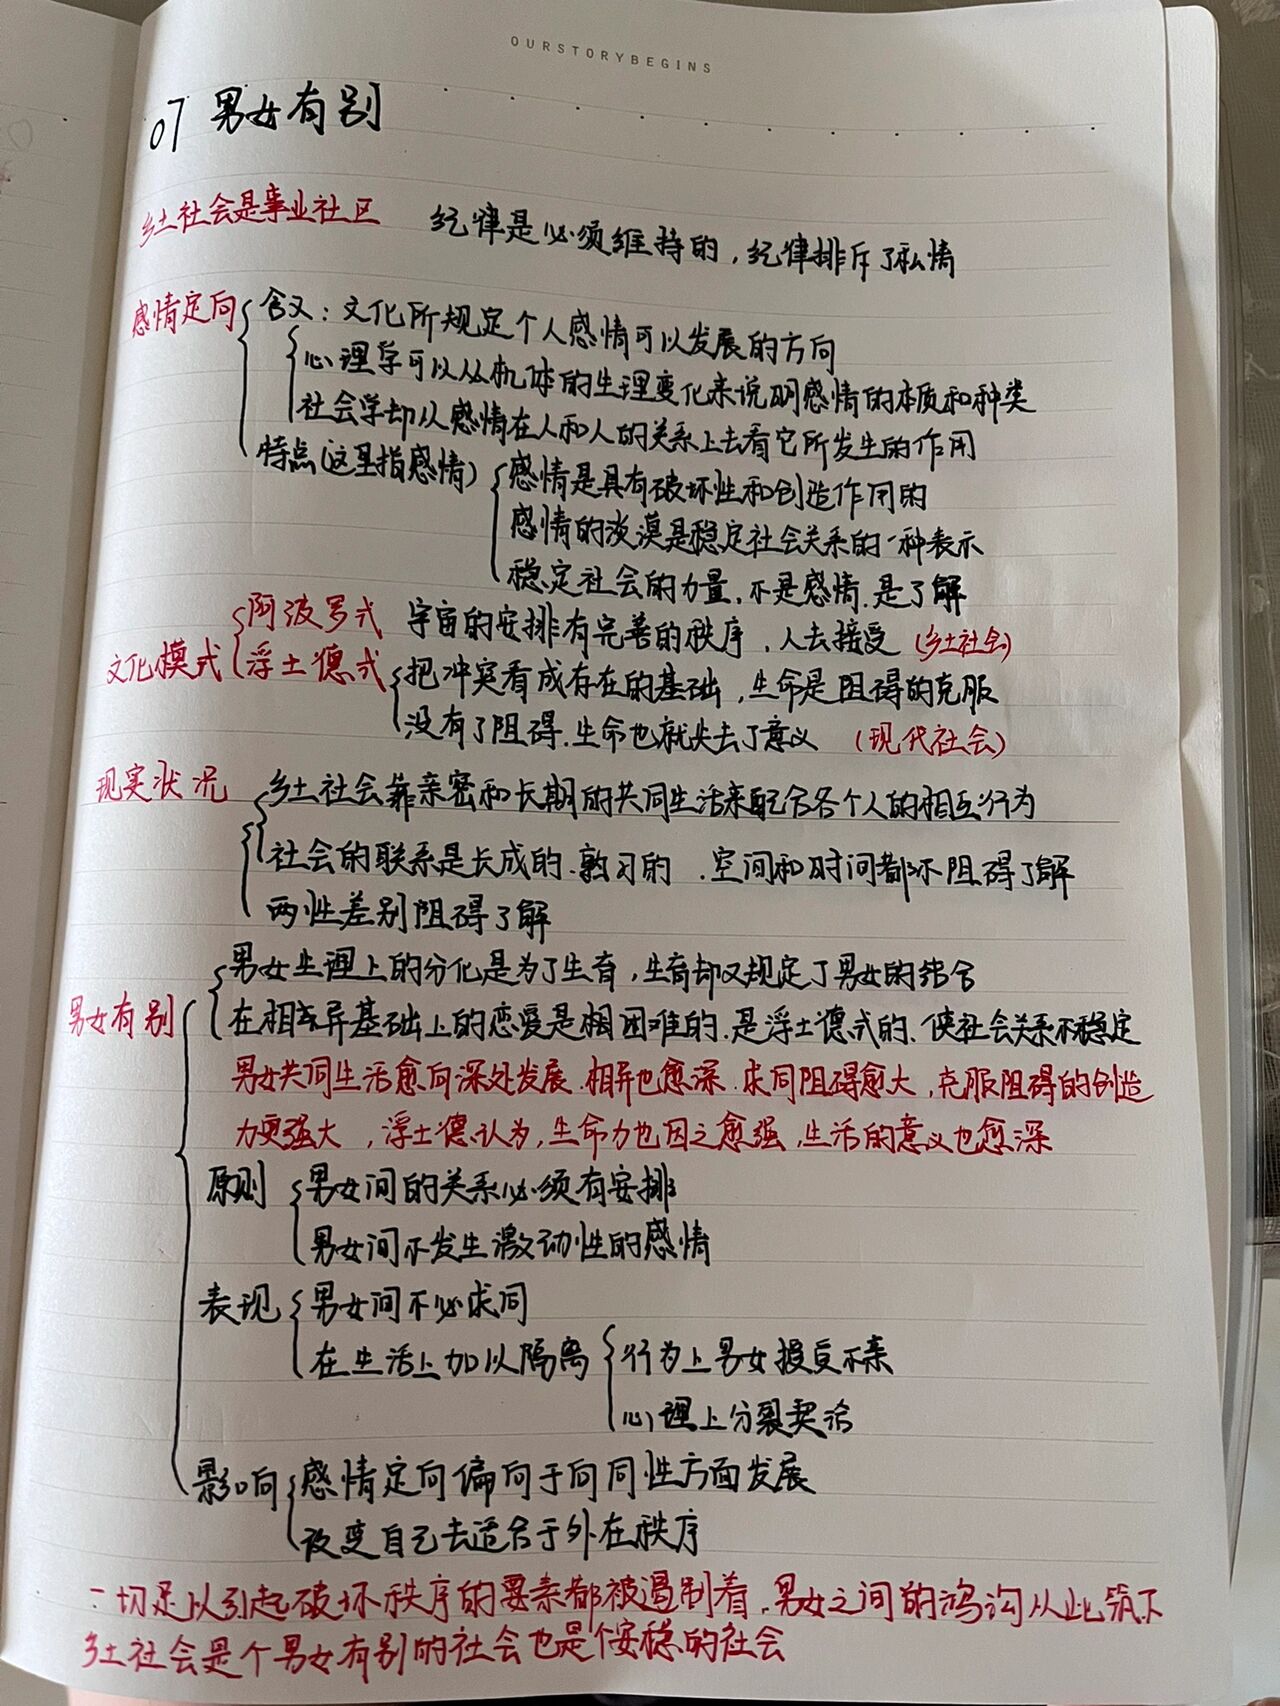 OURSTORYBEGINS
07 男女有别
乡土社会是事业社区 纪律是必须维持的，纪律排斥了私情
感情定向 含义：文化所规定个人感情可以发展的方向
心理学可以从机体的生理变化来说明感情的本质和种类
社会学却从感情在人和人的关系上去看它所发生的作用
特点(这里指感情) 感情是具有破坏性和创造作用的
感情的淡漠是稳定社会关系的一种表示
稳定社会的力量，不是感情，是了解
文化模式 阿波罗式 宇宙的安排有完善的秩序，人去接受 (乡土社会)
浮士德式 把冲突看成存在的基础，生命是阻碍的克服
没有了阻碍，生命也就失去了意义 (现代社会)
现实状况 乡土社会靠亲密和长期的共同生活来配合各个人的相互行为
社会的联系是长成的、熟习的，空间和时间都不阻碍了解
两性差别阻碍了解
男女有别 男女生理上的分化是为了生育，生育却又规定了男女的结合
在相异基础上的恋爱是相困难的，是浮士德式的，使社会关系不稳定
男女共同生活愈向深处发展，相异也愈深，求同阻碍愈大，克服阻碍的创造
力更强大，浮士德认为，生命力也因之愈强，生活的意义也愈深
原则 男女间的关系必须有安排
男女间不发生激动性的感情
表现 男女间不必求同
在生活上加以隔离 行为上男女授受不亲
心理上分裂契洽
影响 感情定向偏向于向同性方面发展
改变自己去适合于外在秩序
一切足以引起破坏秩序的要素都被遏制着，男女之间的鸿沟从此筑下
乡土社会是个男女有别的社会也是个安稳的社会